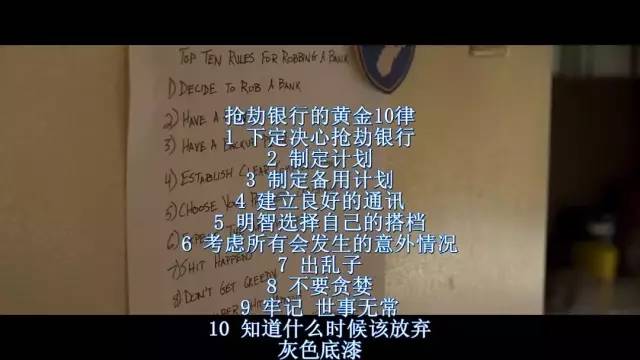 TOP TEN RULES FOR ROBBING A BANK
1) DECIDE TO ROB A BANK
2) HAVE A
3) HAVE A BACKUP
4) ESTABLISH CLEAR
5) CHOOSE YOU
6) EXPE
7) SHIT HAPPENS
8) DON'T GET GREEDY
抢劫银行的黄金10律
1 下定决心抢劫银行
2 制定计划
3 制定备用计划
4 建立良好的通讯
5 明智选择自己的搭档
6 考虑所有会发生的意外情况
7 出乱子
8 不要贪婪
9 牢记 世事无常
10 知道什么时候该放弃
灰色底漆